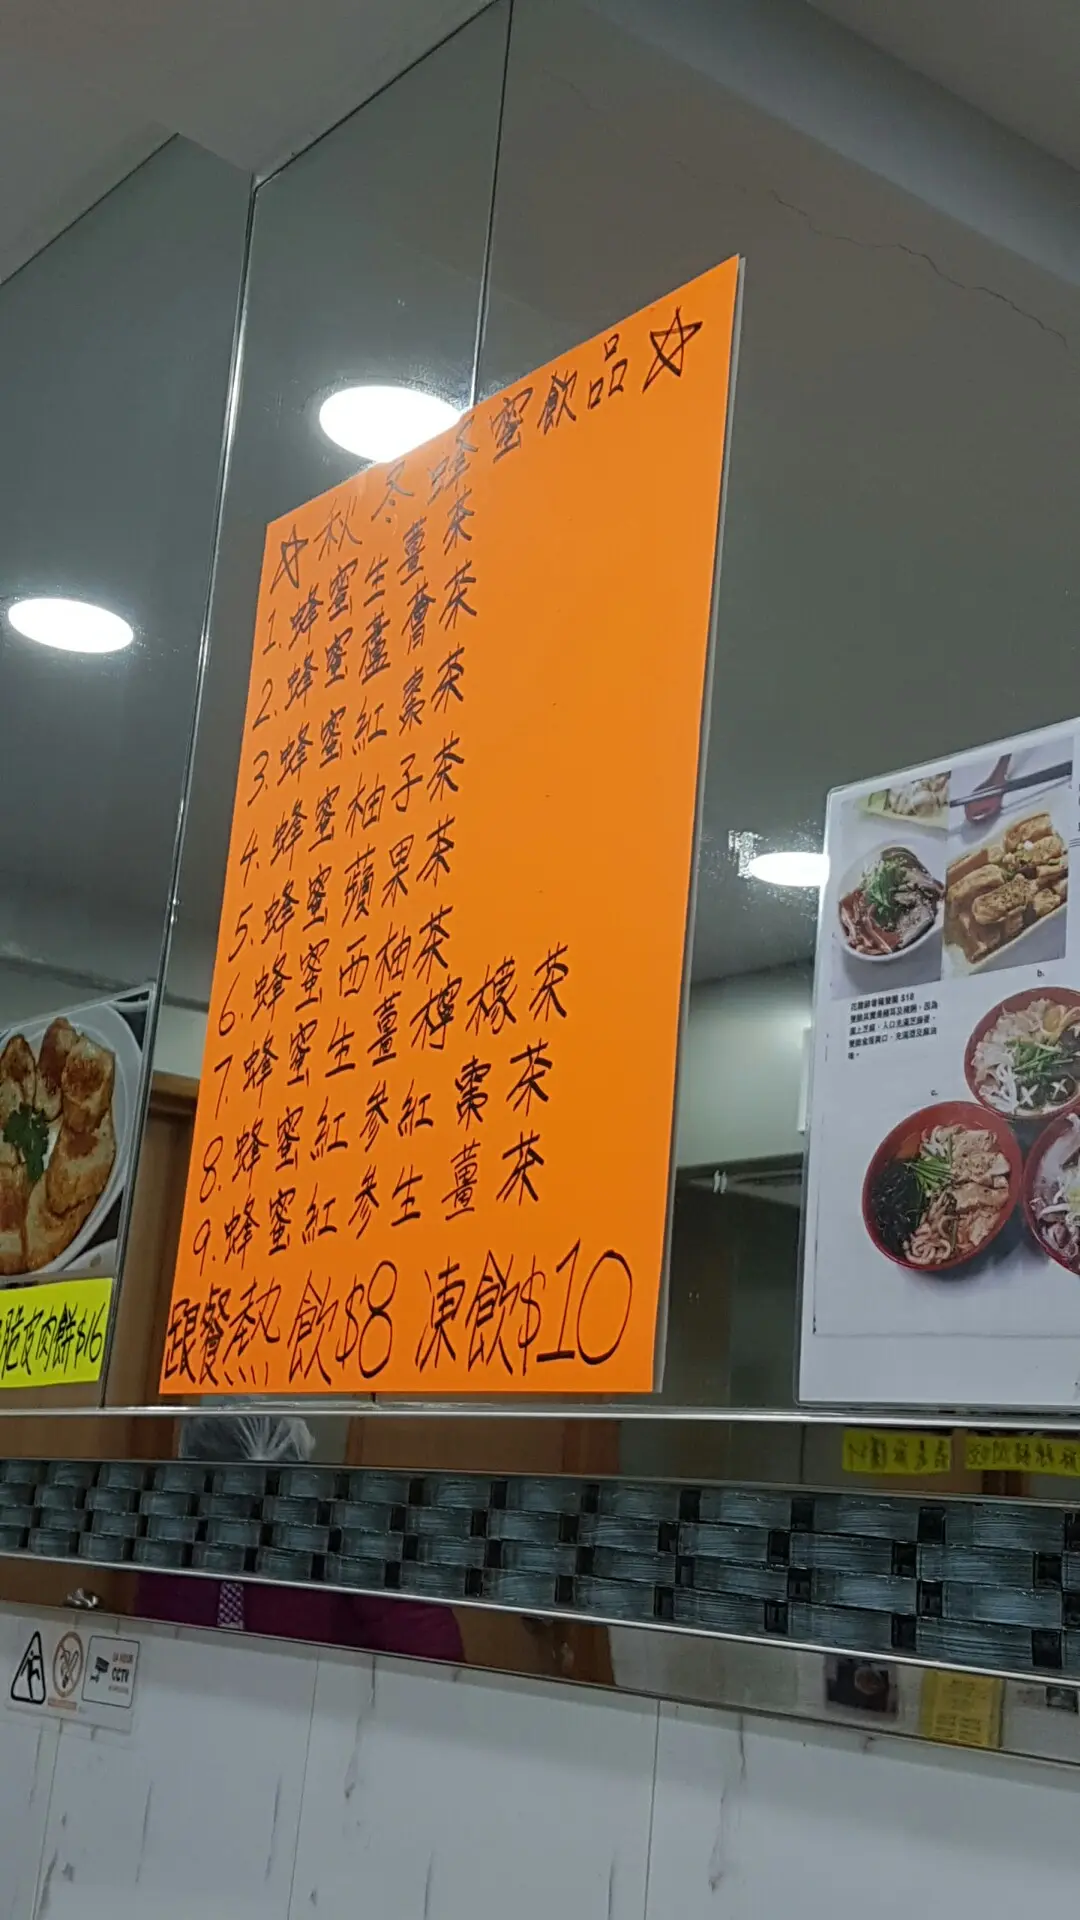 ☆秋冬蜂蜜飲品☆
1. 蜂蜜生薑茶
2. 蜂蜜蘆薈茶
3. 蜂蜜紅棗茶
4. 蜂蜜柚子茶
5. 蜂蜜蘋果茶
6. 蜂蜜西柚茶
7. 蜂蜜生薑檸檬茶
8. 蜂蜜紅參紅棗茶
9. 蜂蜜紅參生薑茶
跟餐熱飲$8 凍飲$10
脆皮肉餅$16
b.
c.
CCTV